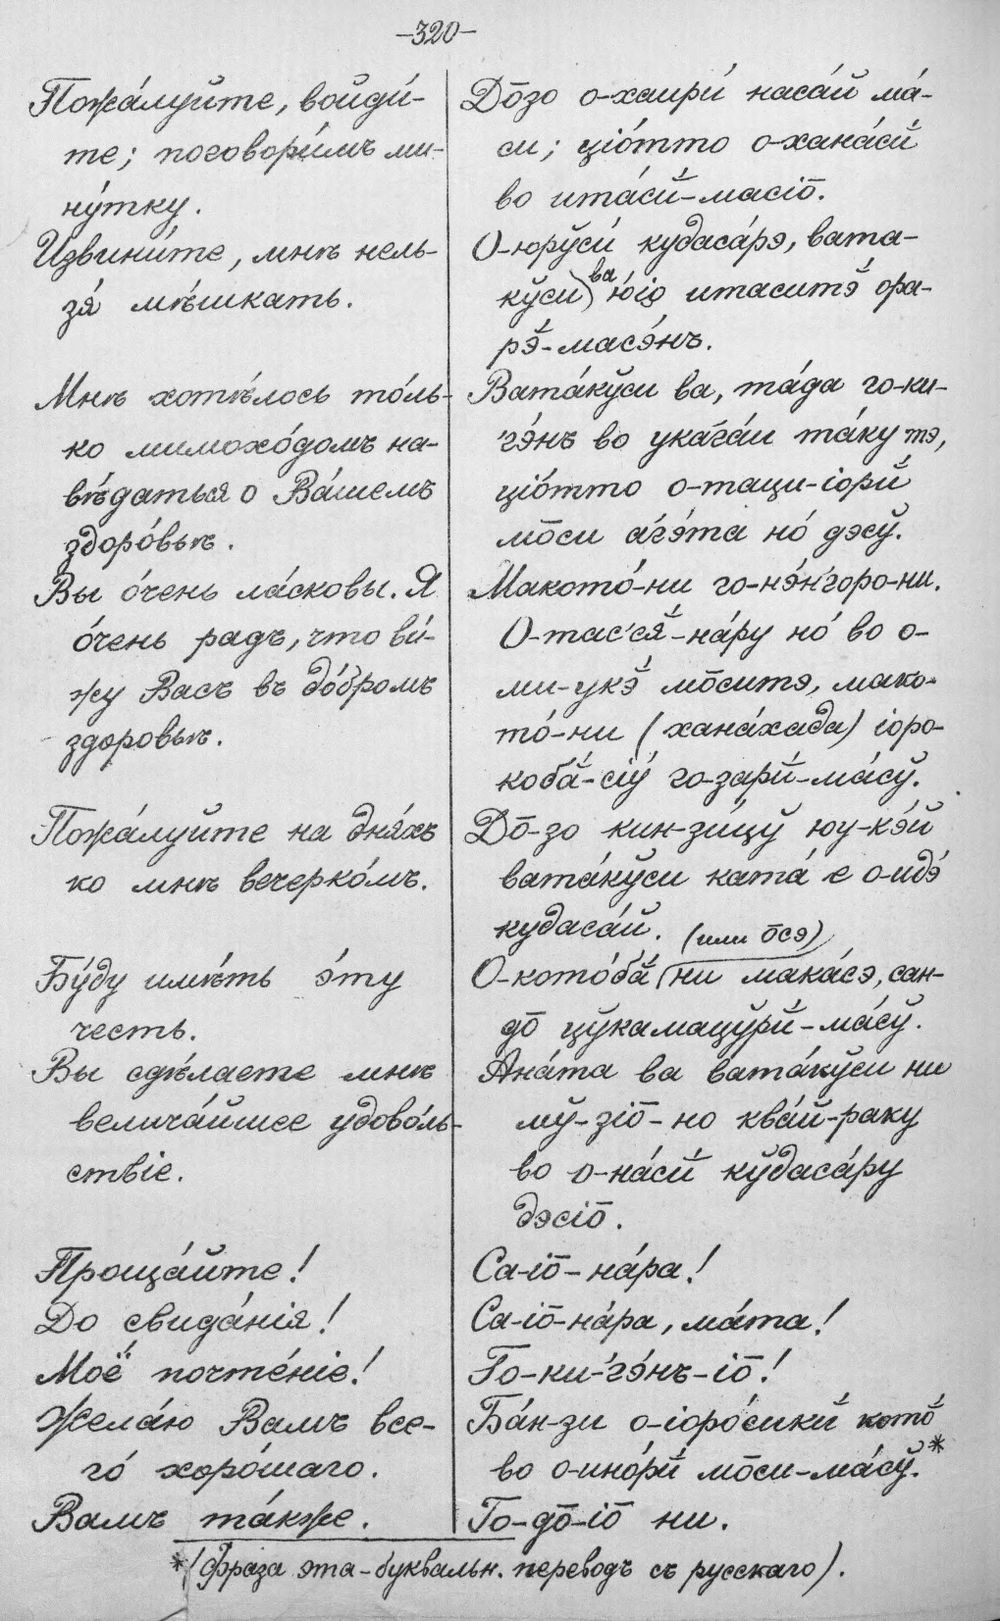 –320–
Пожа́луйте, войди́-
те; поговори́мъ ми-
ну́тку.
Извини́те, мнѣ нель-
зя́ мѣ́шкать.
Мнѣ хотѣ́лось то́ль-
ко мимохо́домъ на-
вѣ́даться о Ва́шемъ
здоро́вьѣ.
Вы о́чень ла́сковы. Я
о́чень радъ, что ви́-
жу Васъ въ до́бромъ
здоровьѣ.
Пожа́луйте на дня́хъ
ко мнѣ вечерко́мъ.
Бу́ду имѣ́ть э́ту
честь.
Вы сдѣ́лаете мнѣ
велича́йшее удово́ль-
ствіе.
Проща́йте!
До свида́нія!
Моё почте́ніе!
Жела́ю Вамъ все-
го́ хоро́шаго.
Вамъ та́кже.
До̄зо о-хаири́ наса́й ма́-
си; ціо́тто о-хана́сй
во ита́сй-масіо̄.
О-юрўси́ кудаса́рэ, вата-
кўси ва ю́іо итаситэ̆ ора-
рэ̆-масэ́нъ.
Вата́кўси ва, та́да го-ки-
'гэ́нъ во ука'га́и та́ку тэ,
ціо́тто о-таци-іорй
мо̄си а́'гэ́та но́ дэсў.
Макото́-ни го-нэ́н'горо-ни.
О-тас'ся̆-на́ру но́ во о-
ми-укэ̆ мо̄ситэ, мако-
то́-ни (хана́хада) іоро-
кобӑ-сіў го-зарй-ма́сў.
До̄-зо кин-зи́цў юу-кэ́й
вата́кўси ката́ е о-идэ́
кудаса́й. (или о̄сэ)
О-кото́бӑ (ни мака́сэ, сан-
до̄ цўкамацўрй-ма́сў.
Ана́та ва вата́кўси ни
мў-зіо̄-но ква́й-раку
во о-на́сй кўдаса́ру
дэсіо̄.
Са-іо̄-на́ра!
Са-іо̄-на́ра, ма́та!
Го-ки-'гэ́нъ-іо̄!
Ба́н-зи о-іоро́сикй кото̆
во о-ино́рй мо̄си-ма́сў.*
Го-до̄-іо̄ ни.
*(Фраза эта – буквальн. переводъ съ русскаго).